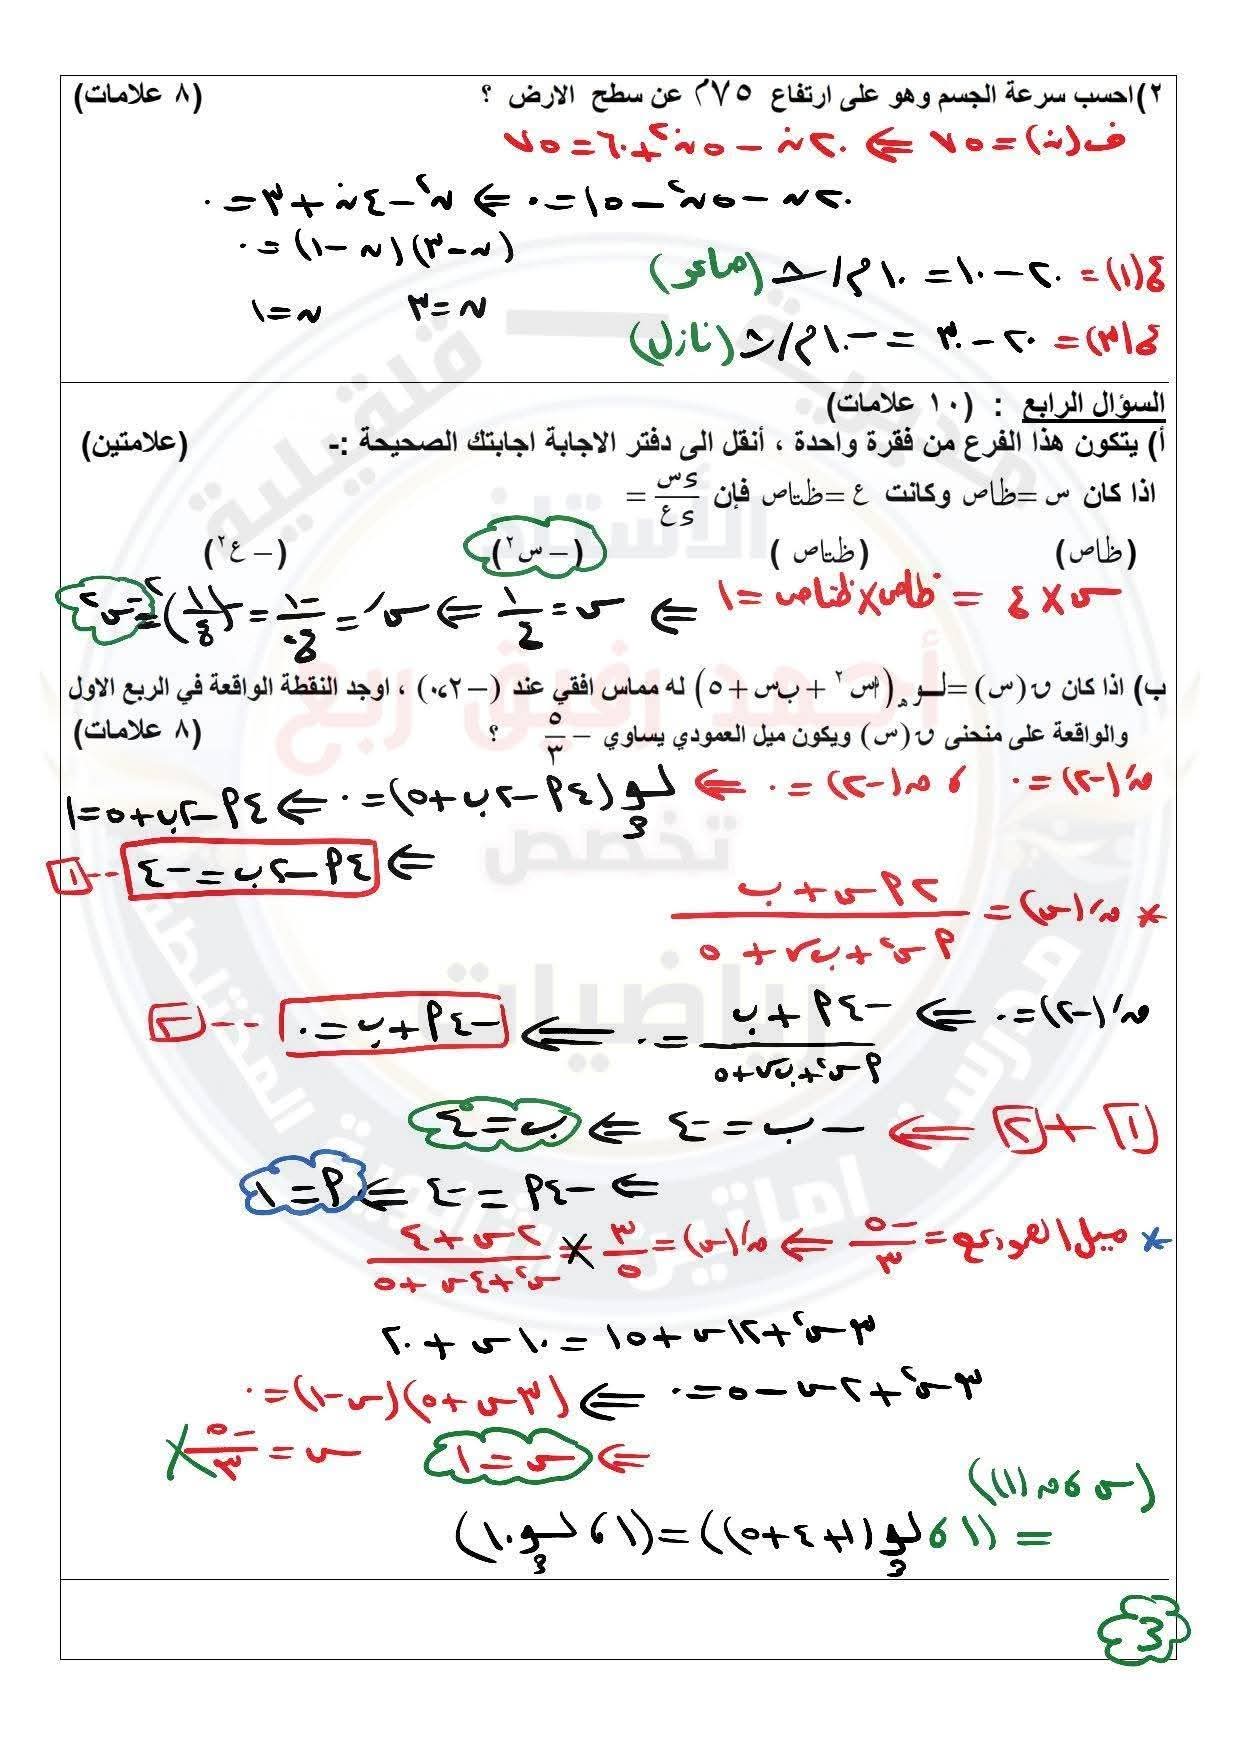 ٢) احسب سرعة الجسم وهو على ارتفاع ٧٥م عن سطح الارض ؟ (٨ علامات)
ف(ن) = ٧٥ ⇐ ٢٠ن − ٥ن² + ٦٠ = ٧٥
٢٠ن − ٥ن² − ١٥ = ٠ ⇐ ن² − ٤ن + ٣ = ٠
(ن − ٣)(ن − ١) = ٠
ن = ٣ ن = ١
ع(١) = ٢٠ − ١٠ = ١٠ م/ث (صاعد)
ع(٣) = ٢٠ − ٣٠ = −١٠ م/ث (نازل)
السؤال الرابع : (١٠ علامات)
أ) يتكون هذا الفرع من فقرة واحدة ، أنقل الى دفتر الاجابة اجابتك الصحيحة :- (علامتين)
اذا كان س = ظاص وكانت ع = ظتاص فإن ءس/ءع =
(ظاص) (ظتاص) (− س²) (− ع²)
س × ع = ظاص × ظتاص = ١ ⇐ س = ١/ع ⇐ س′ = −١/ع² = −(١/ع)² = −س²
ب) اذا كان ق(س) = لــوهـ(أس² + ب س + ٥) له مماس افقي عند (−٢،٠) ، اوجد النقطة الواقعة في الربع الاول
والواقعة على منحنى ق(س) ويكون ميل العمودي يساوي −٥/٣ ؟ (٨ علامات)
ق′(−٢) = ٠ ، ق(−٢) = ٠ ⇐ لــوهـ(٤أ − ٢ب + ٥) = ٠ ⇐ ٤أ − ٢ب + ٥ = ١
⇐ ٤أ − ٢ب = −٤ --- ١
* ق′(س) = (٢أس + ب)/(أس² + ب س + ٥)
ق′(−٢) = ٠ ⇐ (−٤أ + ب)/(أس² + ب س + ٥) = ٠ ⇐ −٤أ + ب = ٠ --- ٢
١ + ٢ ⇐ −ب = −٤ ⇐ ب = ٤
⇐ −٤أ = −٤ ⇐ أ = ١
* ميل العمودي = −٥/٣ ⇐ ق′(س) = ٣/٥ = (٢س + ٤)/(س² + ٤س + ٥)
٣س² + ١٢س + ١٥ = ١٠س + ٢٠
٣س² + ٢س − ٥ = ٠ ⇐ (٣س + ٥)(س − ١) = ٠
⇐ س = ١ س = −٥/٣ ×
(س ، ق(١))
= (١ ، لــوهـ(١ + ٤ + ٥)) = (١ ، لــوهـ١٠)
3
مديرية – قلقيلية
الأستاذ
أحمد رفيق ربع
تخصص
رياضيات